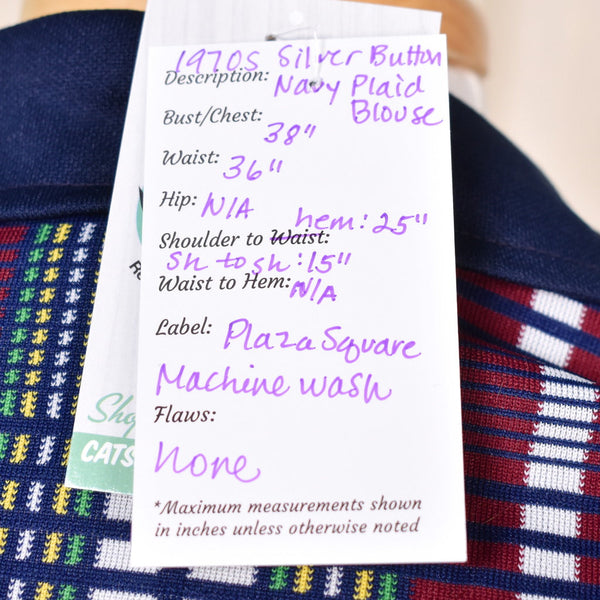 1970s Silver Button
Description: Navy Plaid
Blouse
Bust/Chest: 38"
Waist: 36"
Hip: N/A
hem: 25"
Shoulder to Waist:
Sh to sh: 15"
Waist to Hem: N/A
Label: Plaza Square
Machine wash
Flaws:
None
*Maximum measurements shown
in inches unless otherwise noted
CATS